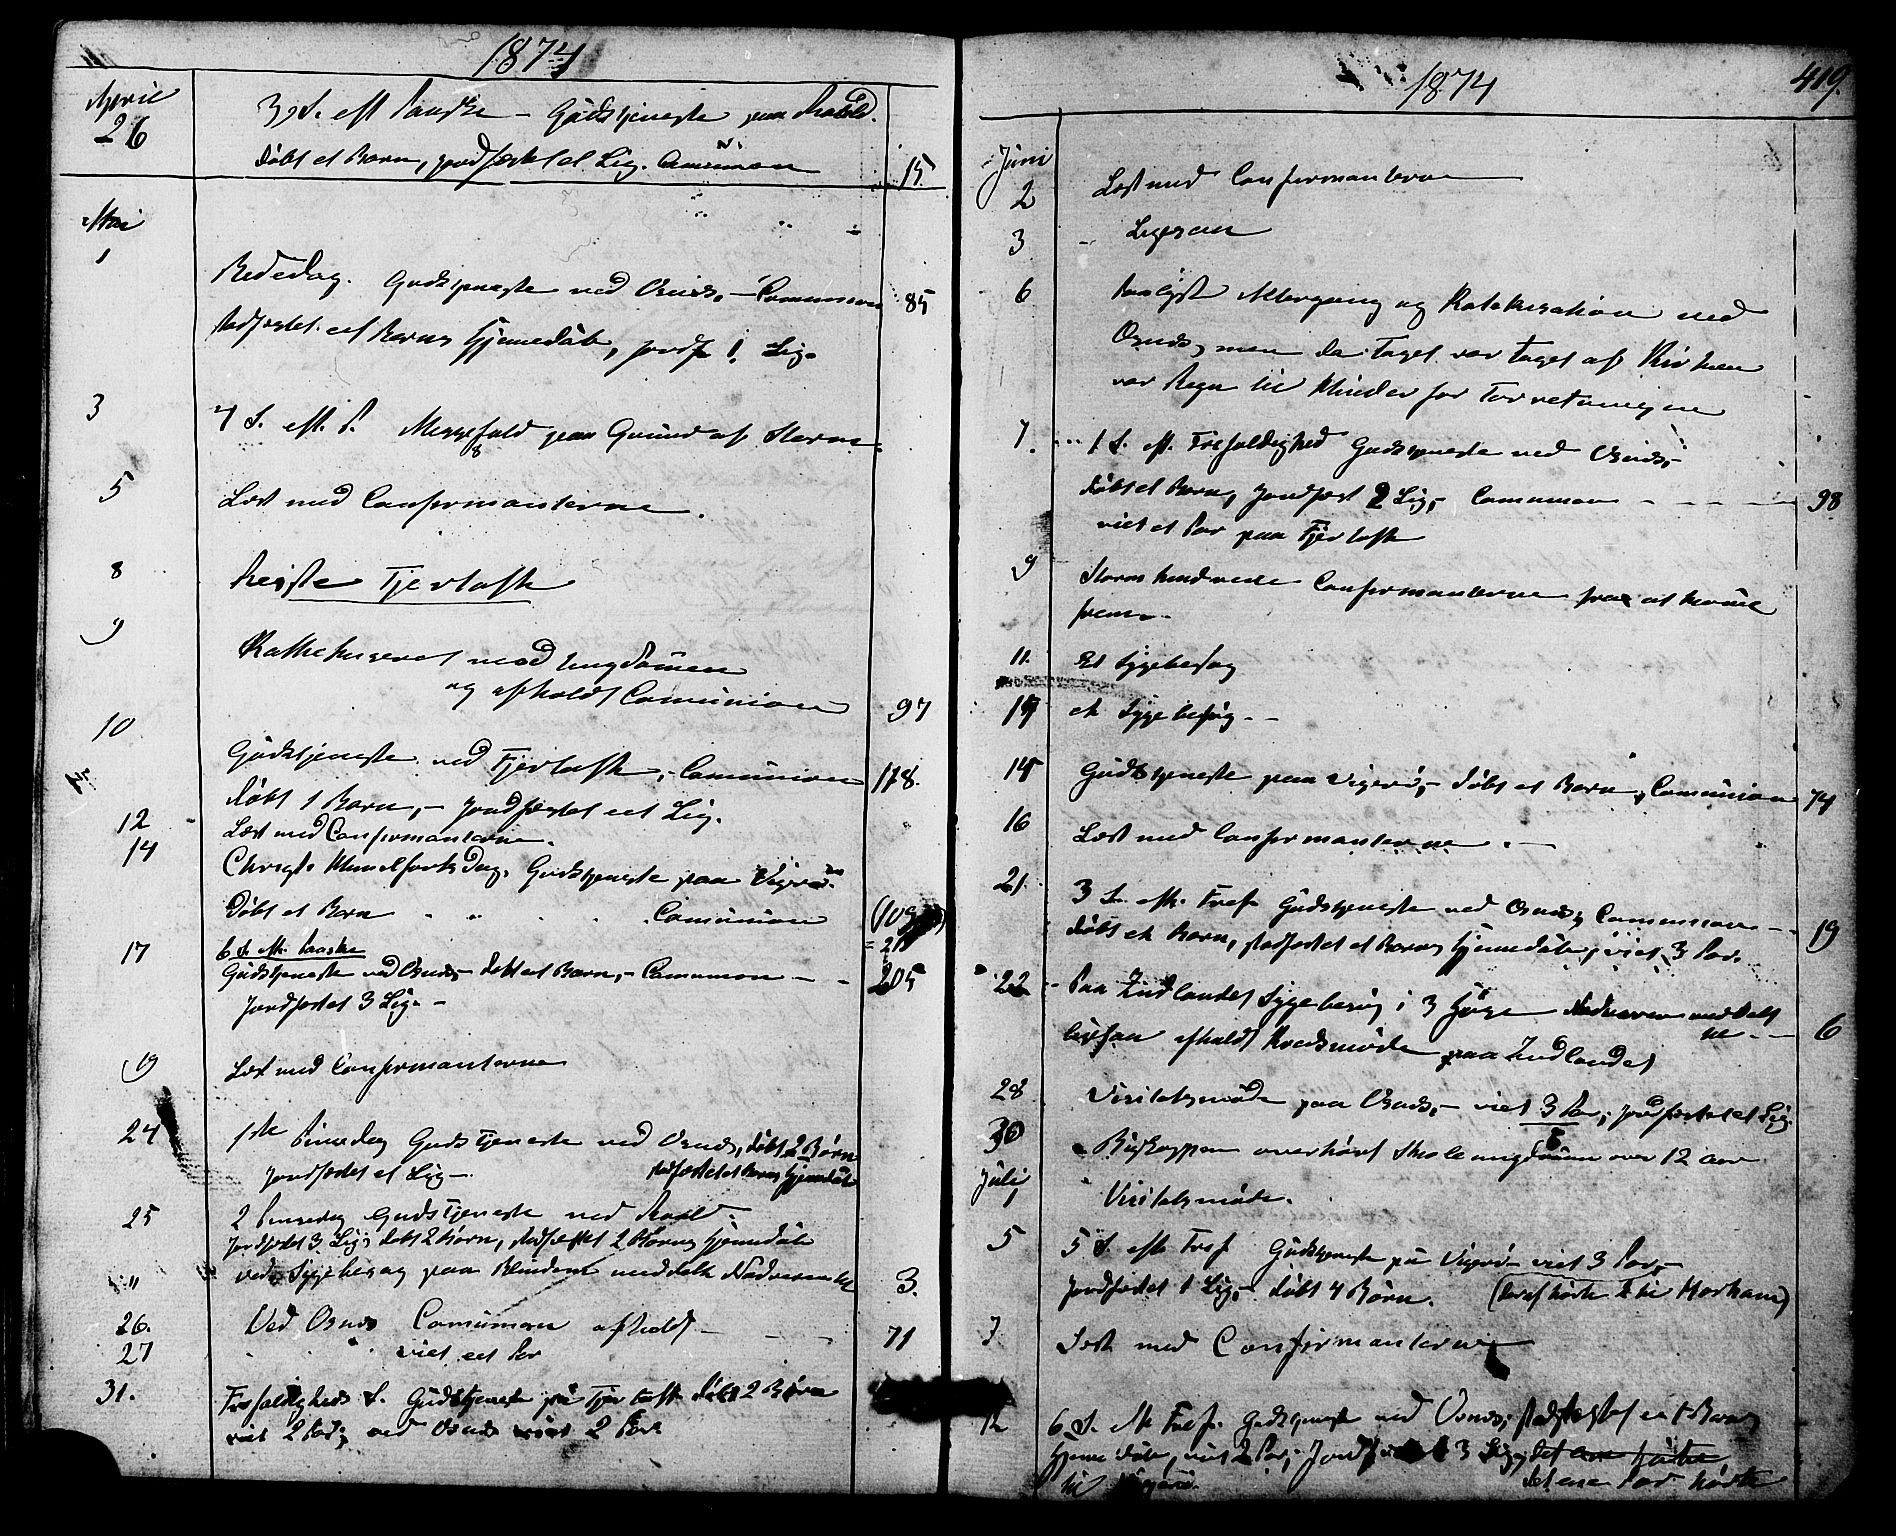 1874
April
26
3 S. eft Paaske – Gudstjeneste paa Roald.
døbt et Barn, jordfæstet et Lig. Comunion 15
Mai
1
Bededag. Gudstjeneste ved Osnæs, – Comunion 85
stadfæstet eet Barns Hjemedåb, jordf 1 Lig.
3 4 S. eft. P. Messefald paa Grund af Storm.
5 Læst med Confirmanterne.
8 Reiste Fjertoft
9 Kathekiseret med ungdomen
og afholdt Comunion 97
10
Gudstjeneste ved Fjertoft, Comunion 178.
døbt 1 Barn, – jordfæstet eet Lig.
12 Læst med Confirmanterne.
14 Christi Himelfartsdag. Gudstjeneste paa Vigerø
Døbt et Barn Comunion
17 6 S. eft. Paaske
Gudstjeneste ved Osnæs, – døbt eet Barn, – Comunion – 205
Jordfæstet 3 Lig. –
19 Læst med Confirmanterne
24 1ste Pinsedag Gudstjeneste ved Osnæs, døbt 2 Børn
Jordfæstet et Lig – stadfæstet et Barns Hjemedåb
25 2 Pinsedag Gudstjeneste ved Roald.
Jordfæstet 3 Lig, døbt 2 Børn, stadfæstet 2 Børns Hjemedåb
" ved Sygebesøg paa Blindem meddelt Nadveren til 3.
26. Ved Osnæs Comunion afholdt – 71
27 " viet eet Par
31. Trefoldigheds S. Gudstjeneste på Fjertoft døbt 2 Børn
viet 2 Par, ved Osnæs viet 2 Par
1874 419.
Juni
2 Læst med Confirmanterne
3 – Ligesaa
6 Paalyst Altergang og Katekisation ved
Osnæs, men da Taget var taget af Kirken
var Regn til Hinder for Forretningen
7. 1 S. eft. Trefoldighed Gudstjeneste ved Osnæs, –
døbt et Barn, Jordfæst 2 Lig, – Comunion – – – – 98
viet et Par paa Fjertoft
9 Storm hindrede Confirmanterne fra at kome
frem.
11. Et Sygebesøg
et Sygebesøg – –
14 Gudstjeneste paa Vigerø, – døbt et Barn, Comunion 74
16 Læst med Confirmanterne. –
21. 3 S. eft. Tref Gudstjeneste ved Osnæs, Comunion – – 19
døbt et Barn, stadfæstet et Barns Hjemedåb, viet 3 Par.
22 – Paa Indlandet Sygebesøg i 3 Huse Nadveren meddelt
til – – 6
ligesaa afholdt Kredsmøde paa Indlandet
28 Visitatsmøde paa Osnæs, – viet 3 Par, jordfæstet et Lig.
30 Biskoppen overhørt Skoleungdomen over 12 Aar
Juli
1 " Visitatsmøde.
5 5 S. eft Tref Gudstjeneste på Vigerø – viet 3 Par, –
Jordfæstet 1 Lig, – døbt 4 Børn. (deraf hørte 1 til Harham)
7 Læst med Confirmanterne
12 6 S. eft Tref. Gudstjeneste ved Osnæs, stadfæstet eet Barns
Hjemedåb, viet 2 Par, Jordf 3 Lig,
det ene Par hørte
til Vigerø.